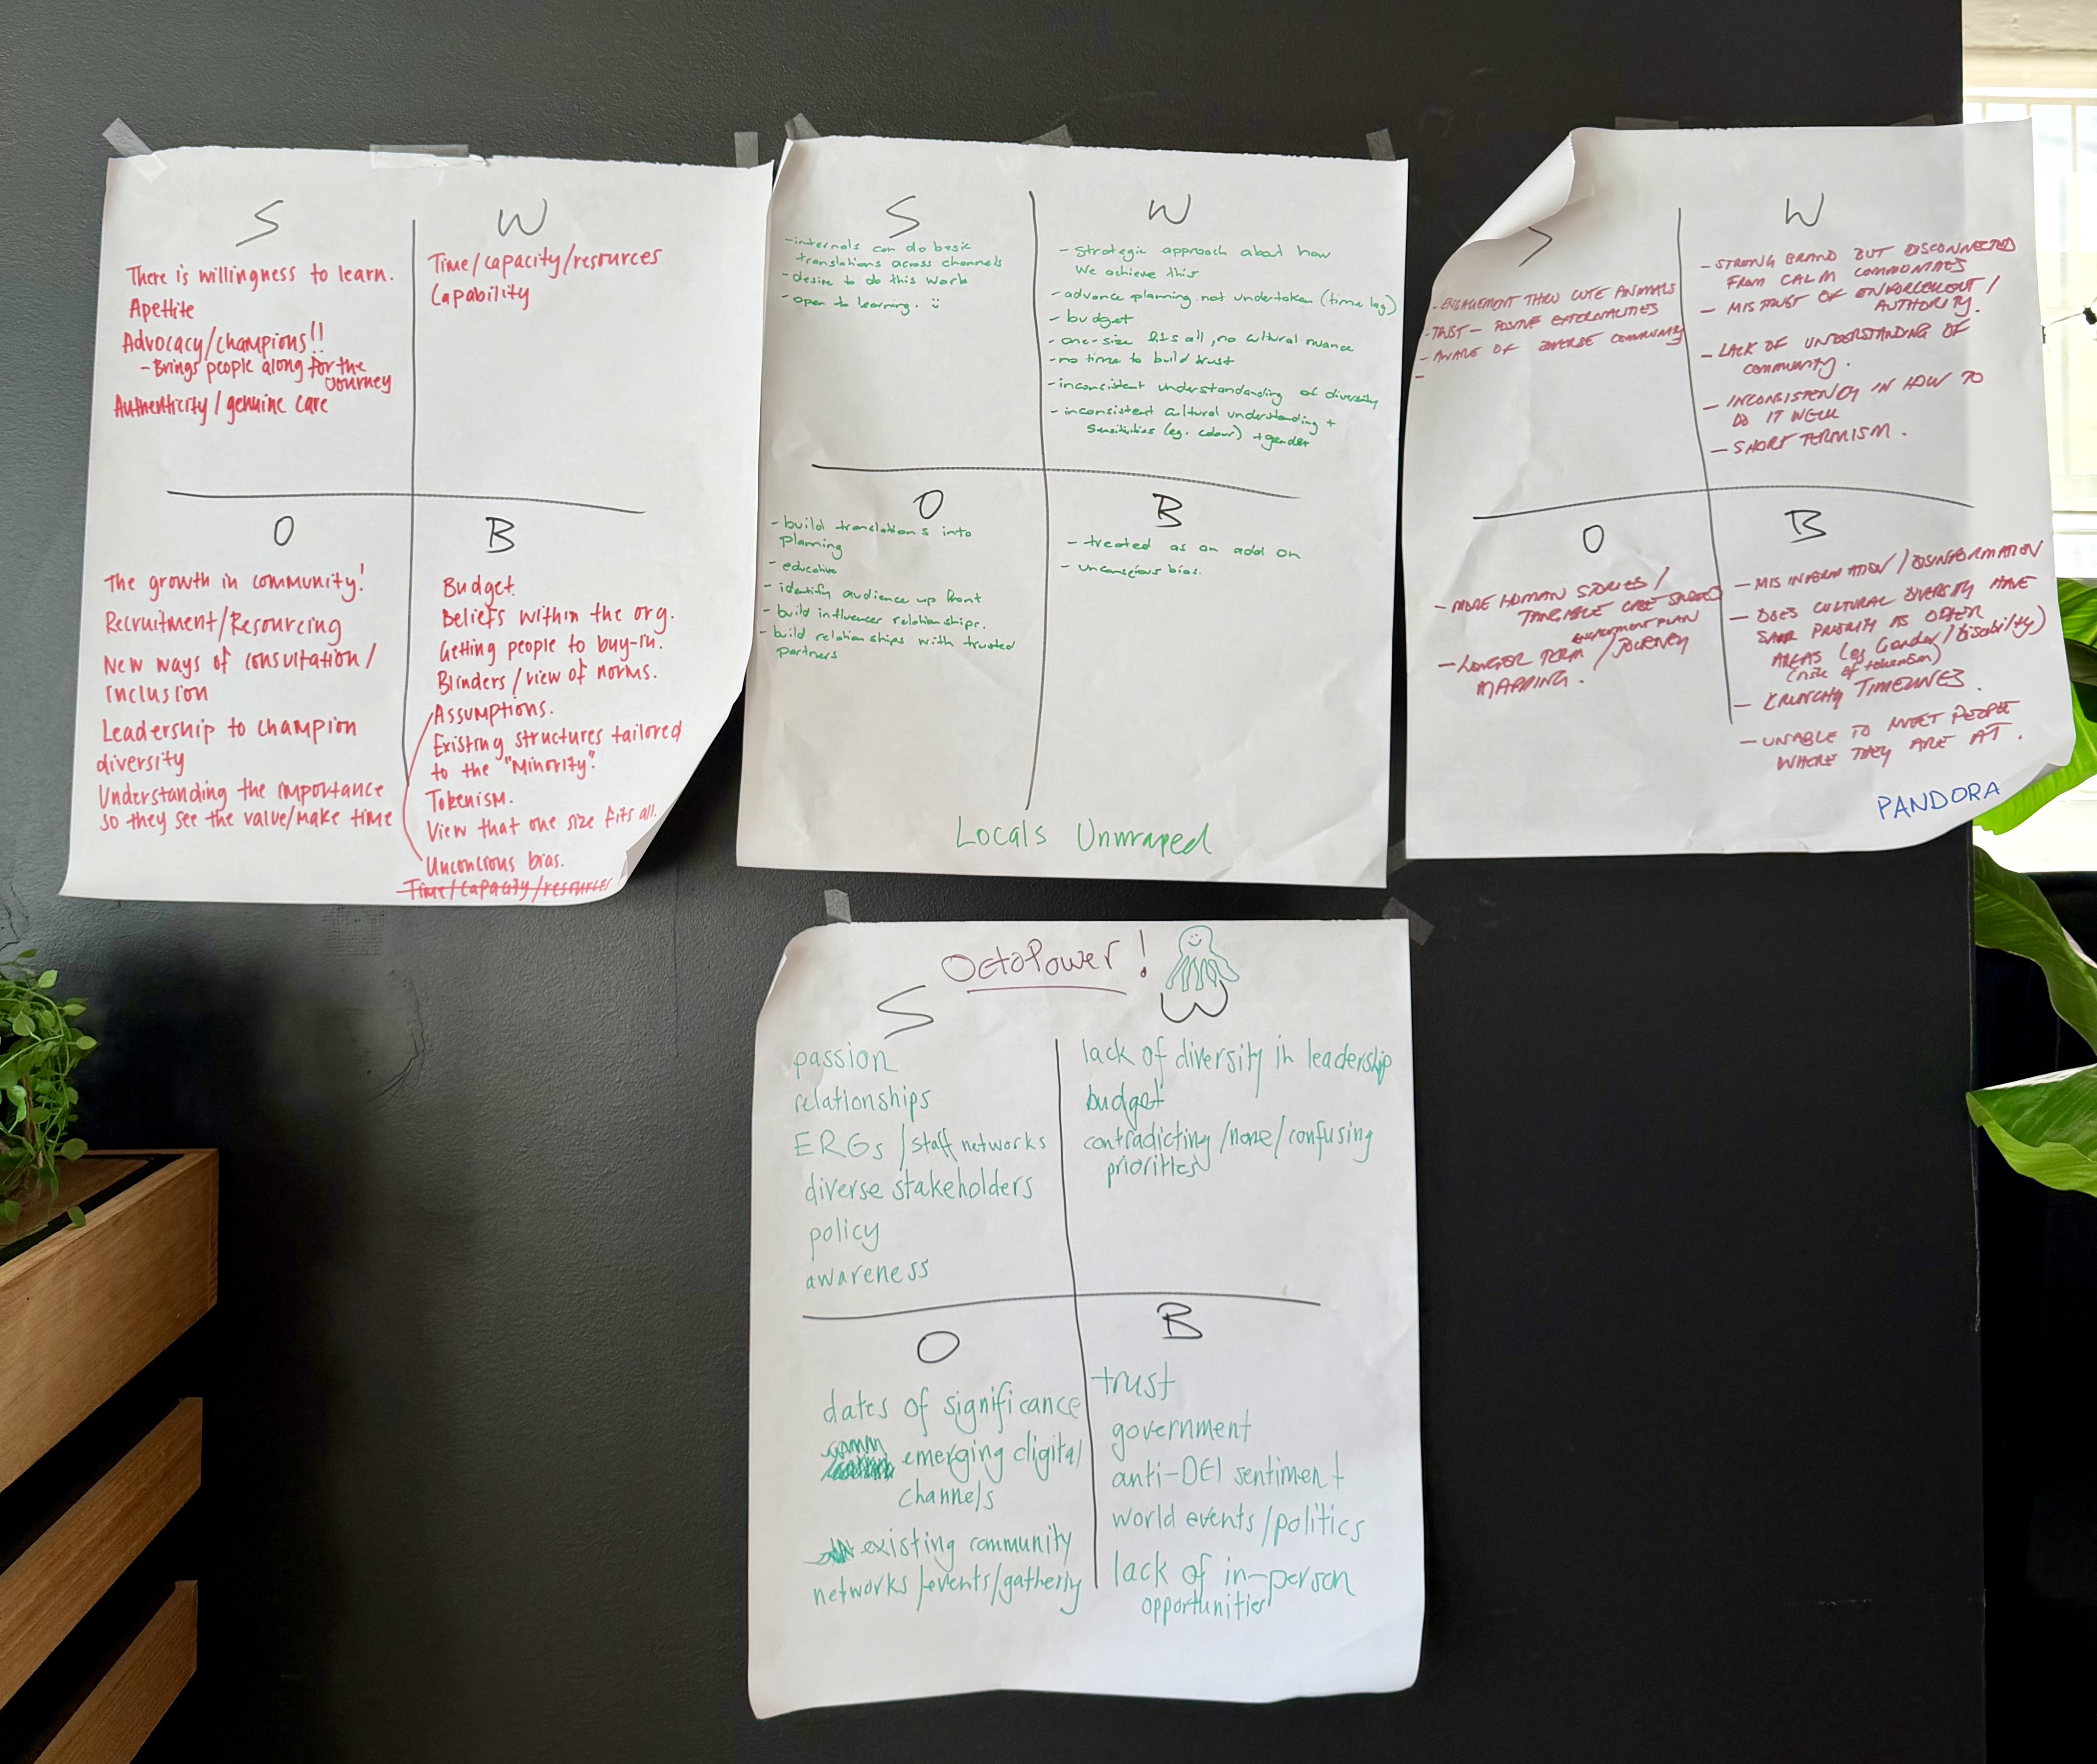 S
There is willingness to learn.
Apettite
Advocacy/champions!!
- Brings people along for the
journey
Authenticity/genuine care
W
Time/capacity/resources
Capability
O
The growth in community!
Recruitment/Resourcing
New ways of consultation/
inclusion
Leadership to champion
diversity
Understanding the importance
so they see the value/make time
B
Budget.
Beliefs within the org.
Getting people to buy-in.
Blinders/view of norms.
Assumptions.
Existing structures tailored
to the "Minority".
Tokenism.
View that one size fits all.
Unconcious bias.
Time/capacity/resources
S
- internals can do basic
translations across channels
- desire to do this work
- open to learning.
W
- Strategic approach about how
we achieve this
- advance planning not undertaken (time lag)
- budget
- one-size fits all, no cultural nuance
- no time to build trust
- inconsistent understandanding of diversity
- inconsistent cultural understanding +
sensitivities (eg. colour) + gender
O
- build translations into
planning
- educative
- identify audience up front
- build influencer relationships.
- build relationships with trusted
partners
B
- treated as an add on
- unconscious bias.
Locals Unwraped
S
- ENGAGEMENT THRU CUTE ANIMALS
- TRUST - POSITIVE EXTERNALITIES
- AWARE OF DIVERSE COMMUNITY
-
W
- STRONG BRAND BUT DISCONNECTED
FROM CALM COMMUNITIES
- MISTRUST OF ENFORCEMENT/
AUTHORITY.
- LACK OF UNDERSTANDING OF
COMMUNITY.
- INCONSISTENCY IN HOW TO
DO IT WELL
- SHORT TERMISM.
O
- MORE HUMAN STORIES/
TANGIBLE CASE STUDIES
ENGAGEMENT PLAN
- LONGER TERM / JOURNEY
MAPPING.
B
- MIS INFORMATION/DISINFORMATION
- DOES CULTURAL DIVERSITY HAVE
SAME PRIORITY AS OTHER
AREAS (eg Gender/Disability)
(risk of tokenism)
- CRUNCHY TIMELINES.
- UNABLE TO MEET PEOPLE
WHERE THEY ARE AT.
PANDORA
OctoPower!
S
passion
relationships
ERGs/staff networks
diverse stakeholders
policy
awareness
W
lack of diversity in leadership
budget
contradicting/none/confusing
priorities
O
dates of significance
emerging digital
channels
existing community
networks/events/gatherig
B
trust
government
anti-DEI sentiment
world events/politics
lack of in-person
opportunities